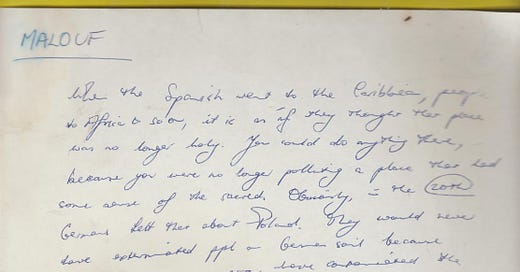 MALOUF
When the Spanish went to the Caribbean, people
to Africa & so on, it is as if they thought that place
was no longer holy. You could do anything there,
because you were no longer polluting a place that had
some sense of the sacred. Obviously, in the 20th
Germans felt that about Poland. They would never
have exterminated ppl on German soil because
have contaminated the